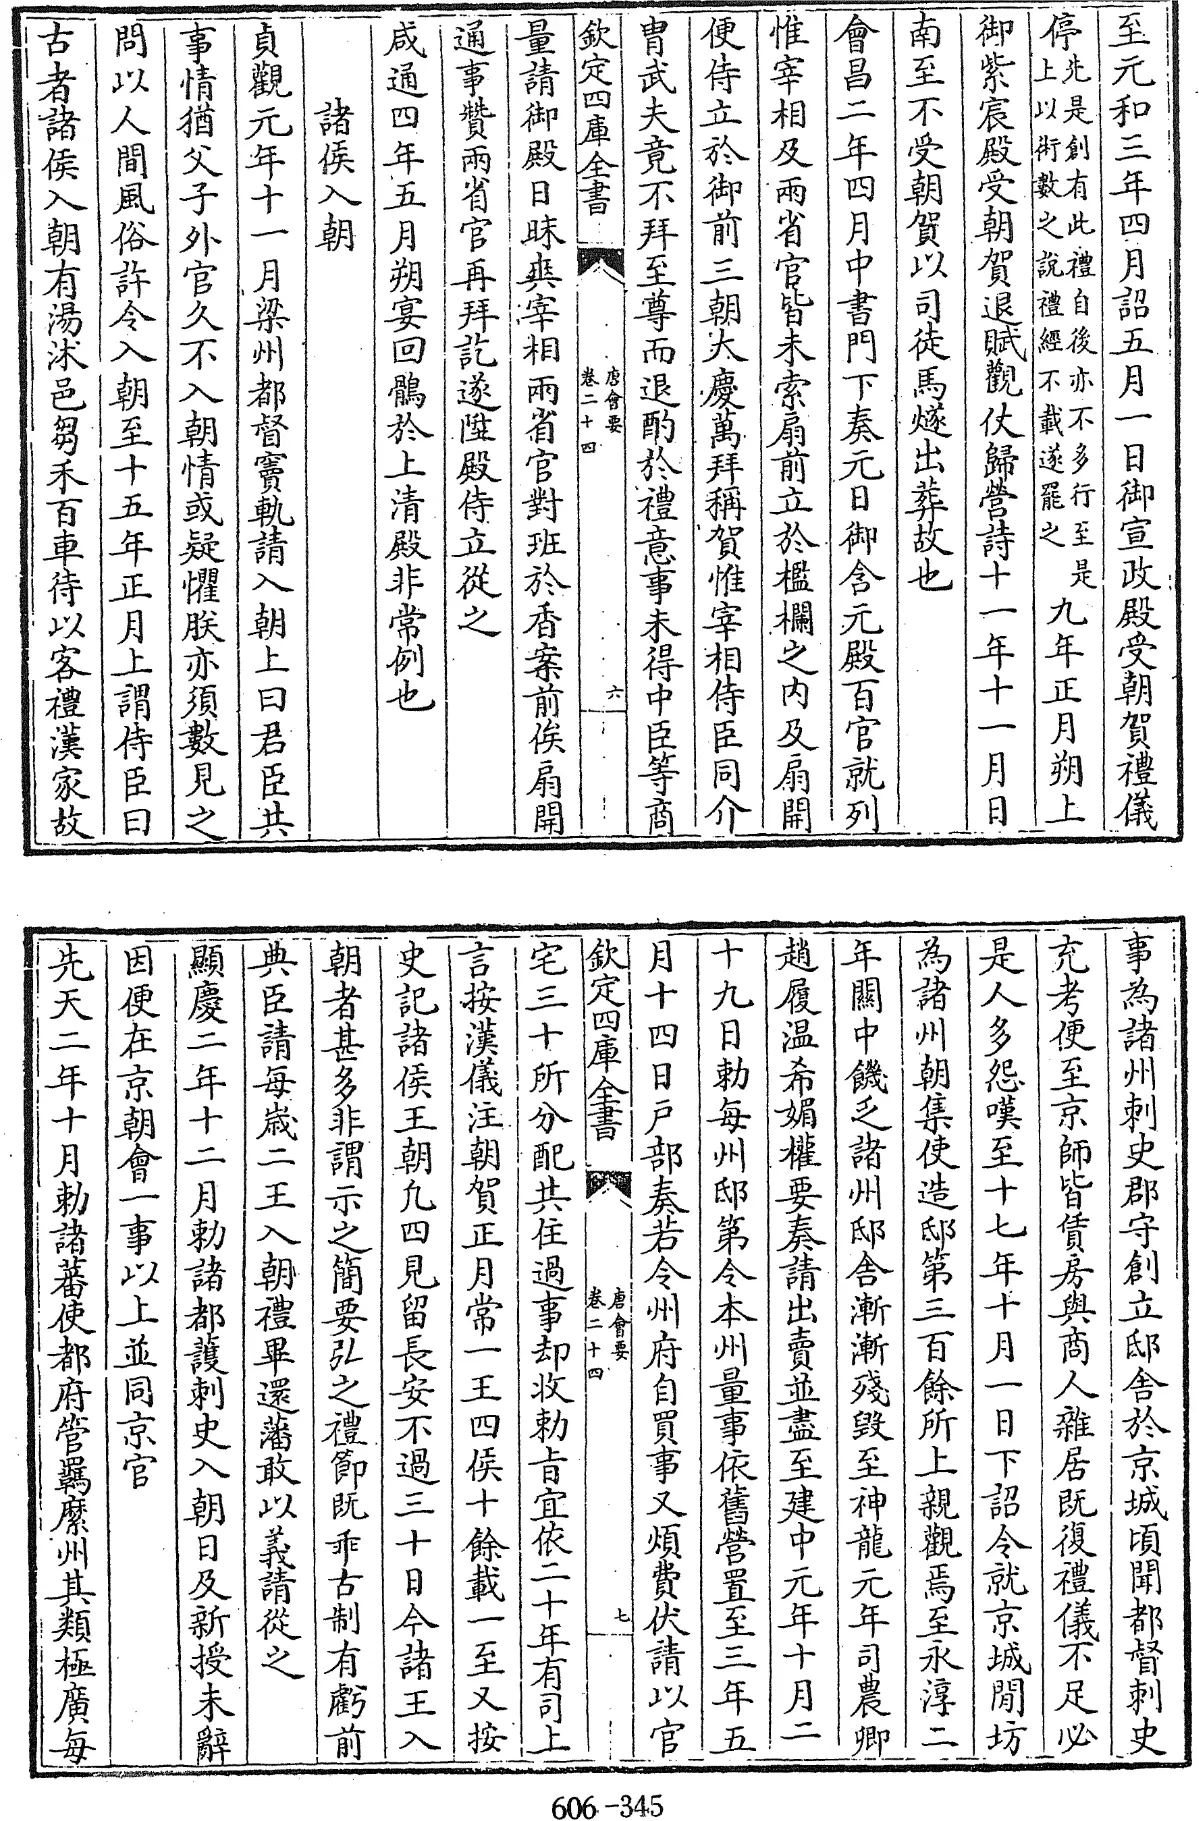 至元和三年四月詔五月一日御宣政殿受朝賀禮儀
停先是創有此禮自後亦不多行至是
上以術數之說禮經不載遂罷之九年正月朔上
御紫宸殿受朝賀退賦觀仗歸營詩十一年十一月日
南至不受朝賀以司徒馬燧出葬故也
會昌二年四月中書門下奏元日御含元殿百官就列
惟宰相及兩省官皆未索扇前立於檻欄之內及扇開
便侍立於御前三朝大慶萬拜稱賀惟宰相侍臣同介
冑武夫竟不拜至尊而退酌於禮意事未得中臣等商
欽定四庫全書
唐會要
卷二十四
六
量請御殿日昧爽宰相兩省官對班於香案前俟扇開
通事贊兩省官再拜訖遂陞殿侍立從之
咸通四年五月朔宴回鶻於上清殿非常例也
諸侯入朝
貞觀元年十一月梁州都督竇軌請入朝上曰君臣共
事情猶父子外官久不入朝情或疑懼朕亦須數見之
問以人間風俗許令入朝至十五年正月上謂侍臣曰
古者諸侯入朝有湯沐邑芻禾百車待以客禮漢家故
事為諸州刺史郡守創立邸舍於京城頃聞都督刺史
充考便至京師皆賃房與商人雜居既復禮儀不足必
是人多怨嘆至十七年十月一日下詔令就京城閒坊
為諸州朝集使造邸第三百餘所上親觀焉至永淳二
年關中饑乏諸州邸舍漸漸殘毀至神龍元年司農卿
趙履溫希媚權要奏請出賣並盡至建中元年十月二
十九日勅每州邸第令本州量事依舊營置至三年五
月十四日戶部奏若令州府自買事又煩費伏請以官
欽定四庫全書
唐會要
卷二十四
七
宅三十所分配共住過事却收勅旨宜依二十年有司上
言按漢儀注朝賀正月常一王四侯十餘載一至又按
史記諸侯王朝凡四見留長安不過三十日今諸王入
朝者甚多非謂示之簡要弘之禮節既乖古制有虧前
典臣請每歲二王入朝禮畢還藩敢以義請從之
顯慶二年十二月勅諸都護刺史入朝日及新授未辭
因便在京朝會一事以上並同京官
先天二年十月勅諸蕃使都府管羈縻州其類極廣每
606-345